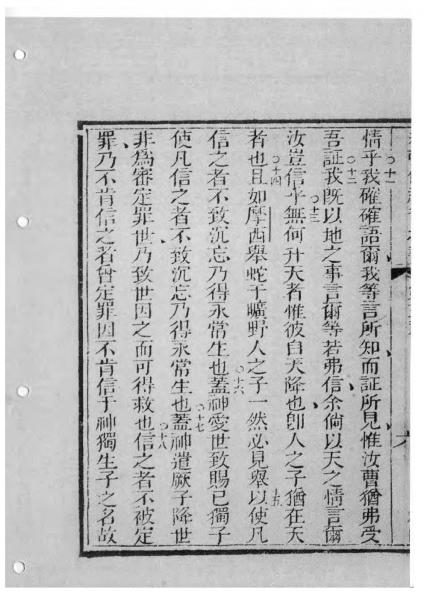 情乎我確確語爾我等言所知而証所見惟汝曹猶弗受
吾証我既以地之事言爾等若弗信余倘以天之情言爾
汝豈信乎無何升天者惟彼自天降也即人之子猶在天
者也且如摩西舉蛇于曠野人之子一然必見舉以使凡
信之者不致沉忘乃得永常生也蓋神愛世致賜己獨子
使凡信之者不致沉忘乃得永常生也蓋神遣厥子降世
非為審定罪世乃致世因之而可得救也信之者不被定
罪乃不肯信之者曾定罪因不肯信于神獨生子之名故
○十一
○十二
○十三
○十四
十五
○十六
○十七
○十八